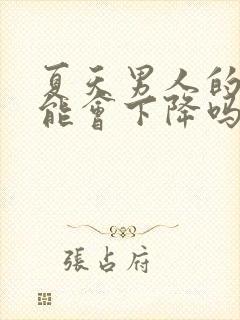 夏天男人的
能會下降吗
張占府